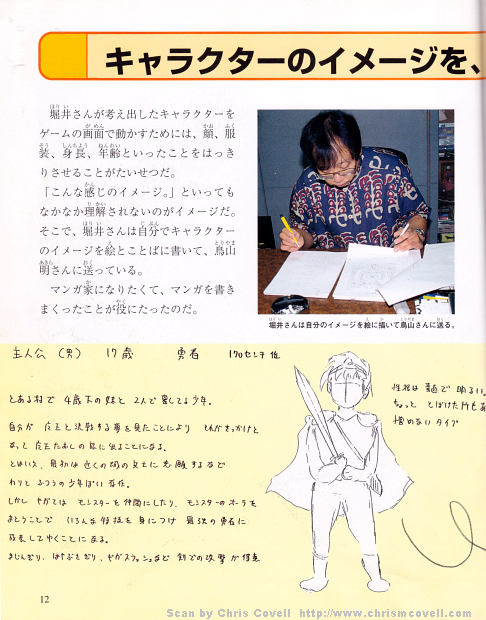 キャラクターのイメージを、
堀井さんが考え出したキャラクターを
ゲームの画面で動かすためには、顔、服
装、身長、年齢といったことをはっき
りさせることがたいせつだ。
「こんな感じのイメージ。」といっても
なかなか理解されないのがイメージだ。
そこで、堀井さんは自分でキャラクター
のイメージを絵とことばに書いて、鳥山
明さんに送っている。
マンガ家になりたくて、マンガを書き
まくったことが役にたったのだ。
堀井さんは自分のイメージを絵に描いて鳥山さんに送る。
主人公(男) 17歳 勇者 170センチ位
性格は 明るい。
ちょっと とぼけた所もあ
憎めないタイプ
とある村で 4歳下の妹と 2人で暮してる少年。
自分が 魔王と決戦する夢を見たことにより それがきっかけと
なって 魔王たおしの旅に出ることになる。
とはいえ、最初は 近くの城の兵士に志願するなど
わりと ふつうの少年ぽい存在。
しかし やがては モンスターを仲間にしたり、モンスターのオーラを
まとうことで いろんな特技を身につけ 最強の勇者に
成長してゆくことになる。
まじんぎり、はやぶさぎり、 など 剣での攻撃が得意
12
Scan by Chris Covell http://www.chrismcovell.com